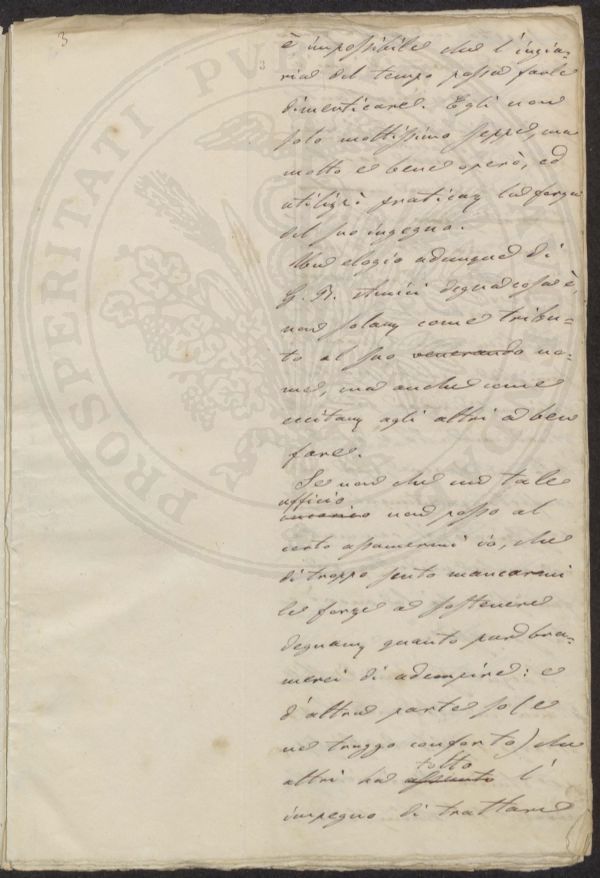 3
3
è impossibile che l'ingiu=
ria del tempo possa farle
dimenticare. Egli non
solo moltissimo seppe, ma
molto e bene operò, ed
utilizzò praticam. la forza
del suo ingegno.
Un elogio adunque di
G. B. Amici degna cosa è,
non solam. come tribu=
to al suo venerando no=
me, ma anche come
eccitam. agli altri a ben
fare.
Se non che un tale
ufficio
incarico non posso al
certo assumermi io, che
di troppo sento mancarmi
le forze a sostenere
degnam. quanto pur bra=
merei di adempire: e
d'altra parte so (e
ne traggo conforto) che
tolto
altri ha assunto l'
impegno di trattare
PROSPERITATI PUBLICAE